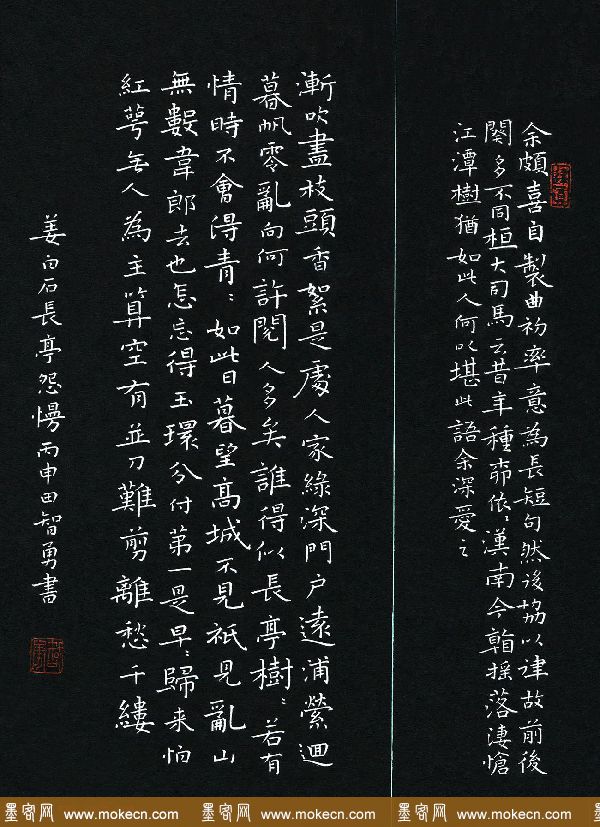 余頗喜自製曲初率意為長短句然後協以律故前後
闋多不同桓大司馬云昔年種柳依〻漢南今搖落凄愴
江潭樹猶如此人何以堪此語余深愛之
漸吹盡枝頭香絮是處人家綠深門户遠浦縈迴
暮帆零亂向何許閱人多矣誰得似長亭樹〻若有
情時不會得青〻如此日暮望高城不見祇見亂山
無數韋郎去也怎忘得玉環分付第一是早〻歸来怕
紅萼无人為主算空有並刀難剪離愁千縷
姜白石長亭怨慢丙申田智勇書
墨客网 www.mokecn.com 墨客网 www.mokecn.com 墨客网 www.mokecn.com